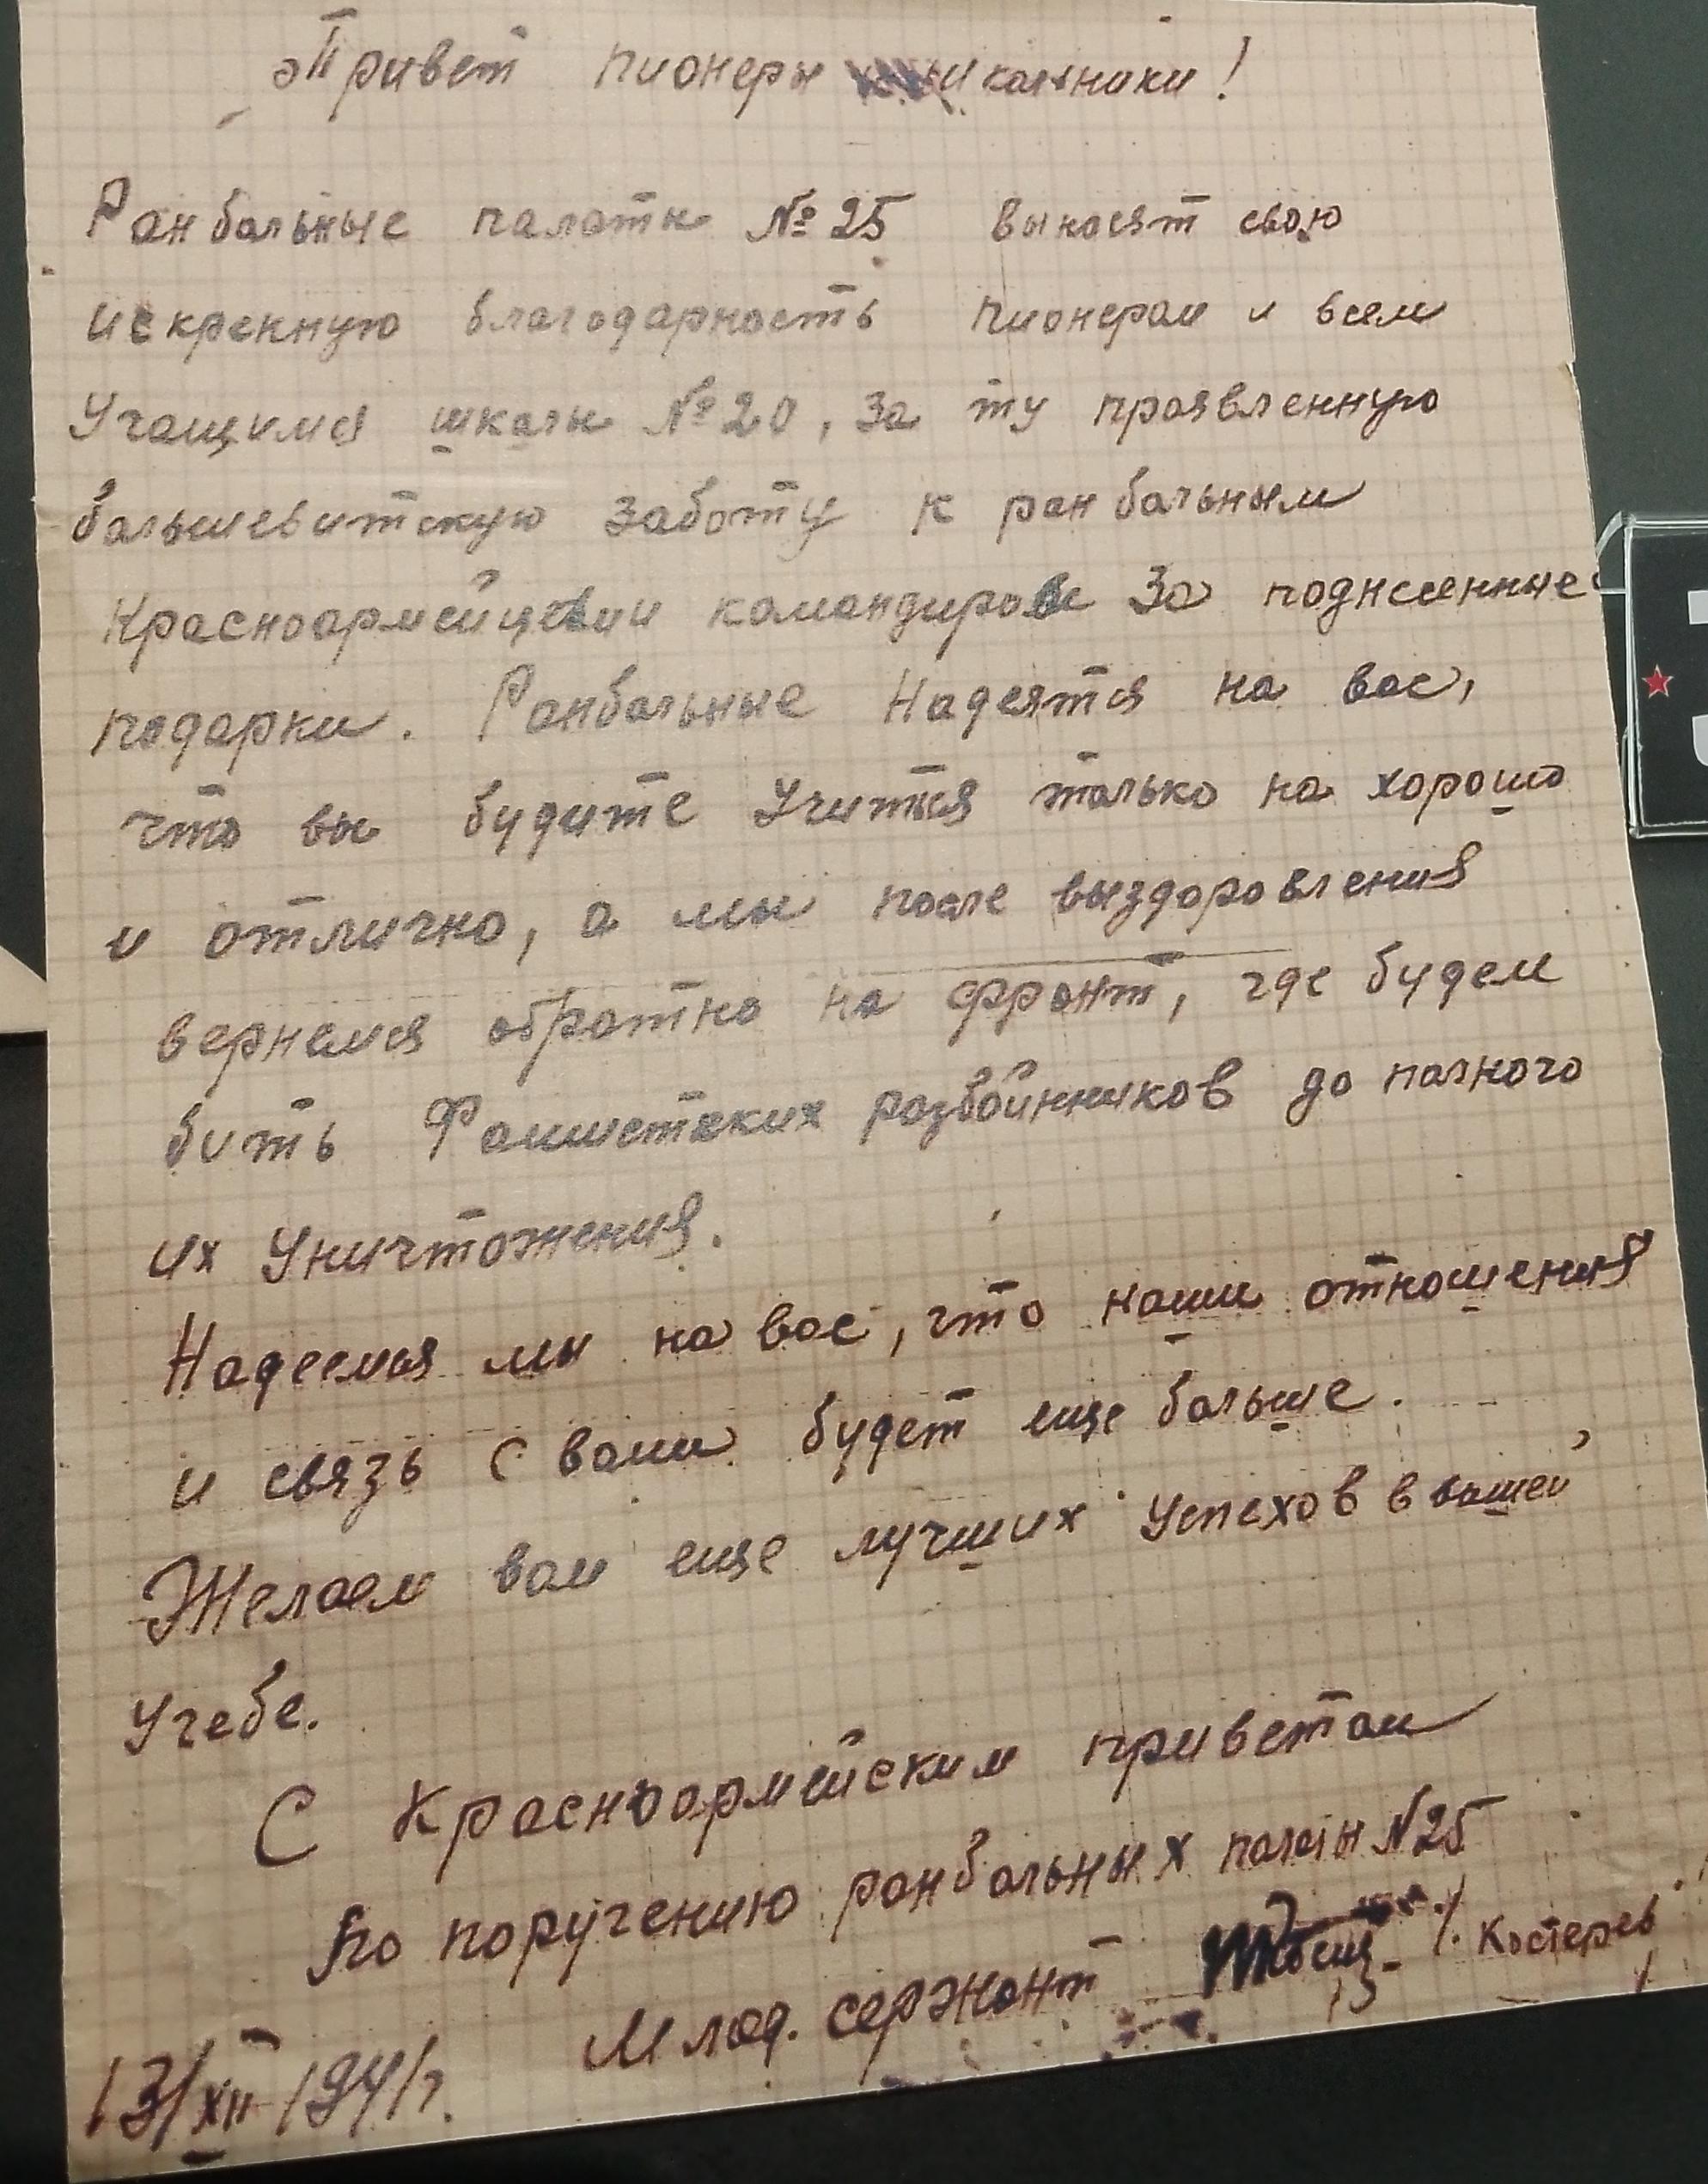 Привет пионеры школьники!
Ранбольные палаты № 25 выносят свою
искренную благодарность пионерам и всем
Учащимся школы № 20, за ту проявленную
большевитскую заботу к ранбольным
Красноармейцам и командиров За поднесенные
подарки. Ранбольные Надеятся на вас,
что вы будите Учиться только на хорошо
и отлично, а мы после выздоровления
вернемся обратно на фронт, где будем
бить Фашистских разбойнников до полного
их Уничтожения.
Надеемся мы на вас, что наши отношения
и связь с вами будет еще больше.
Желаем вам еще лучших Успехов в вашей
Учебе.
С Красноармейским приветом
По поручению ранбольных палаты N 25
Млад. сержант /. Костерев /
13/XII-1941г.